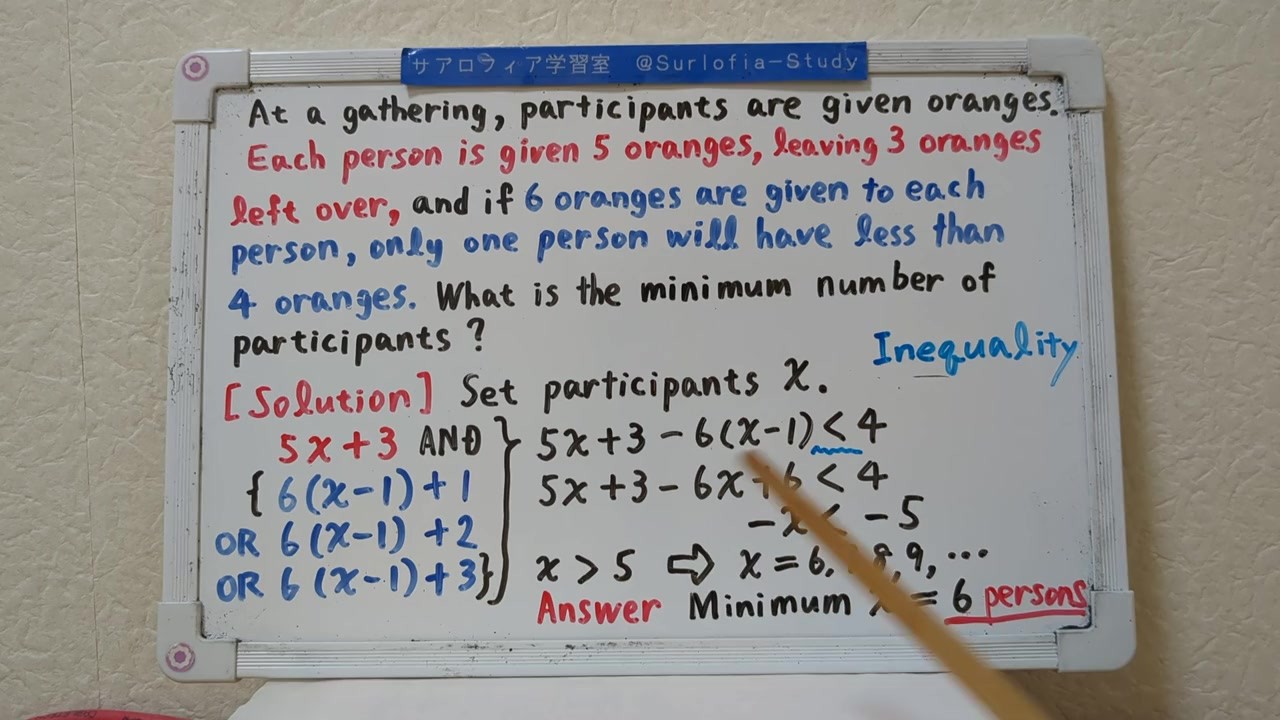 サアロフィア学習室 @Surlofia-Study
At a gathering, participants are given oranges.
Each person is given 5 oranges, leaving 3 oranges
left over, and if 6 oranges are given to each
person, only one person will have less than
4 oranges. What is the minimum number of
participants?
Inequality
[Solution] Set participants x.
5x+3 AND
{ 6(x-1)+1
OR 6(x-1)+2
OR 6(x-1)+3}
5x+3-6(x-1)<4
5x+3-6x+6<4
-x< -5
x>5 ⇨ x=6, 8,9,...
Answer Minimum x = 6 persons